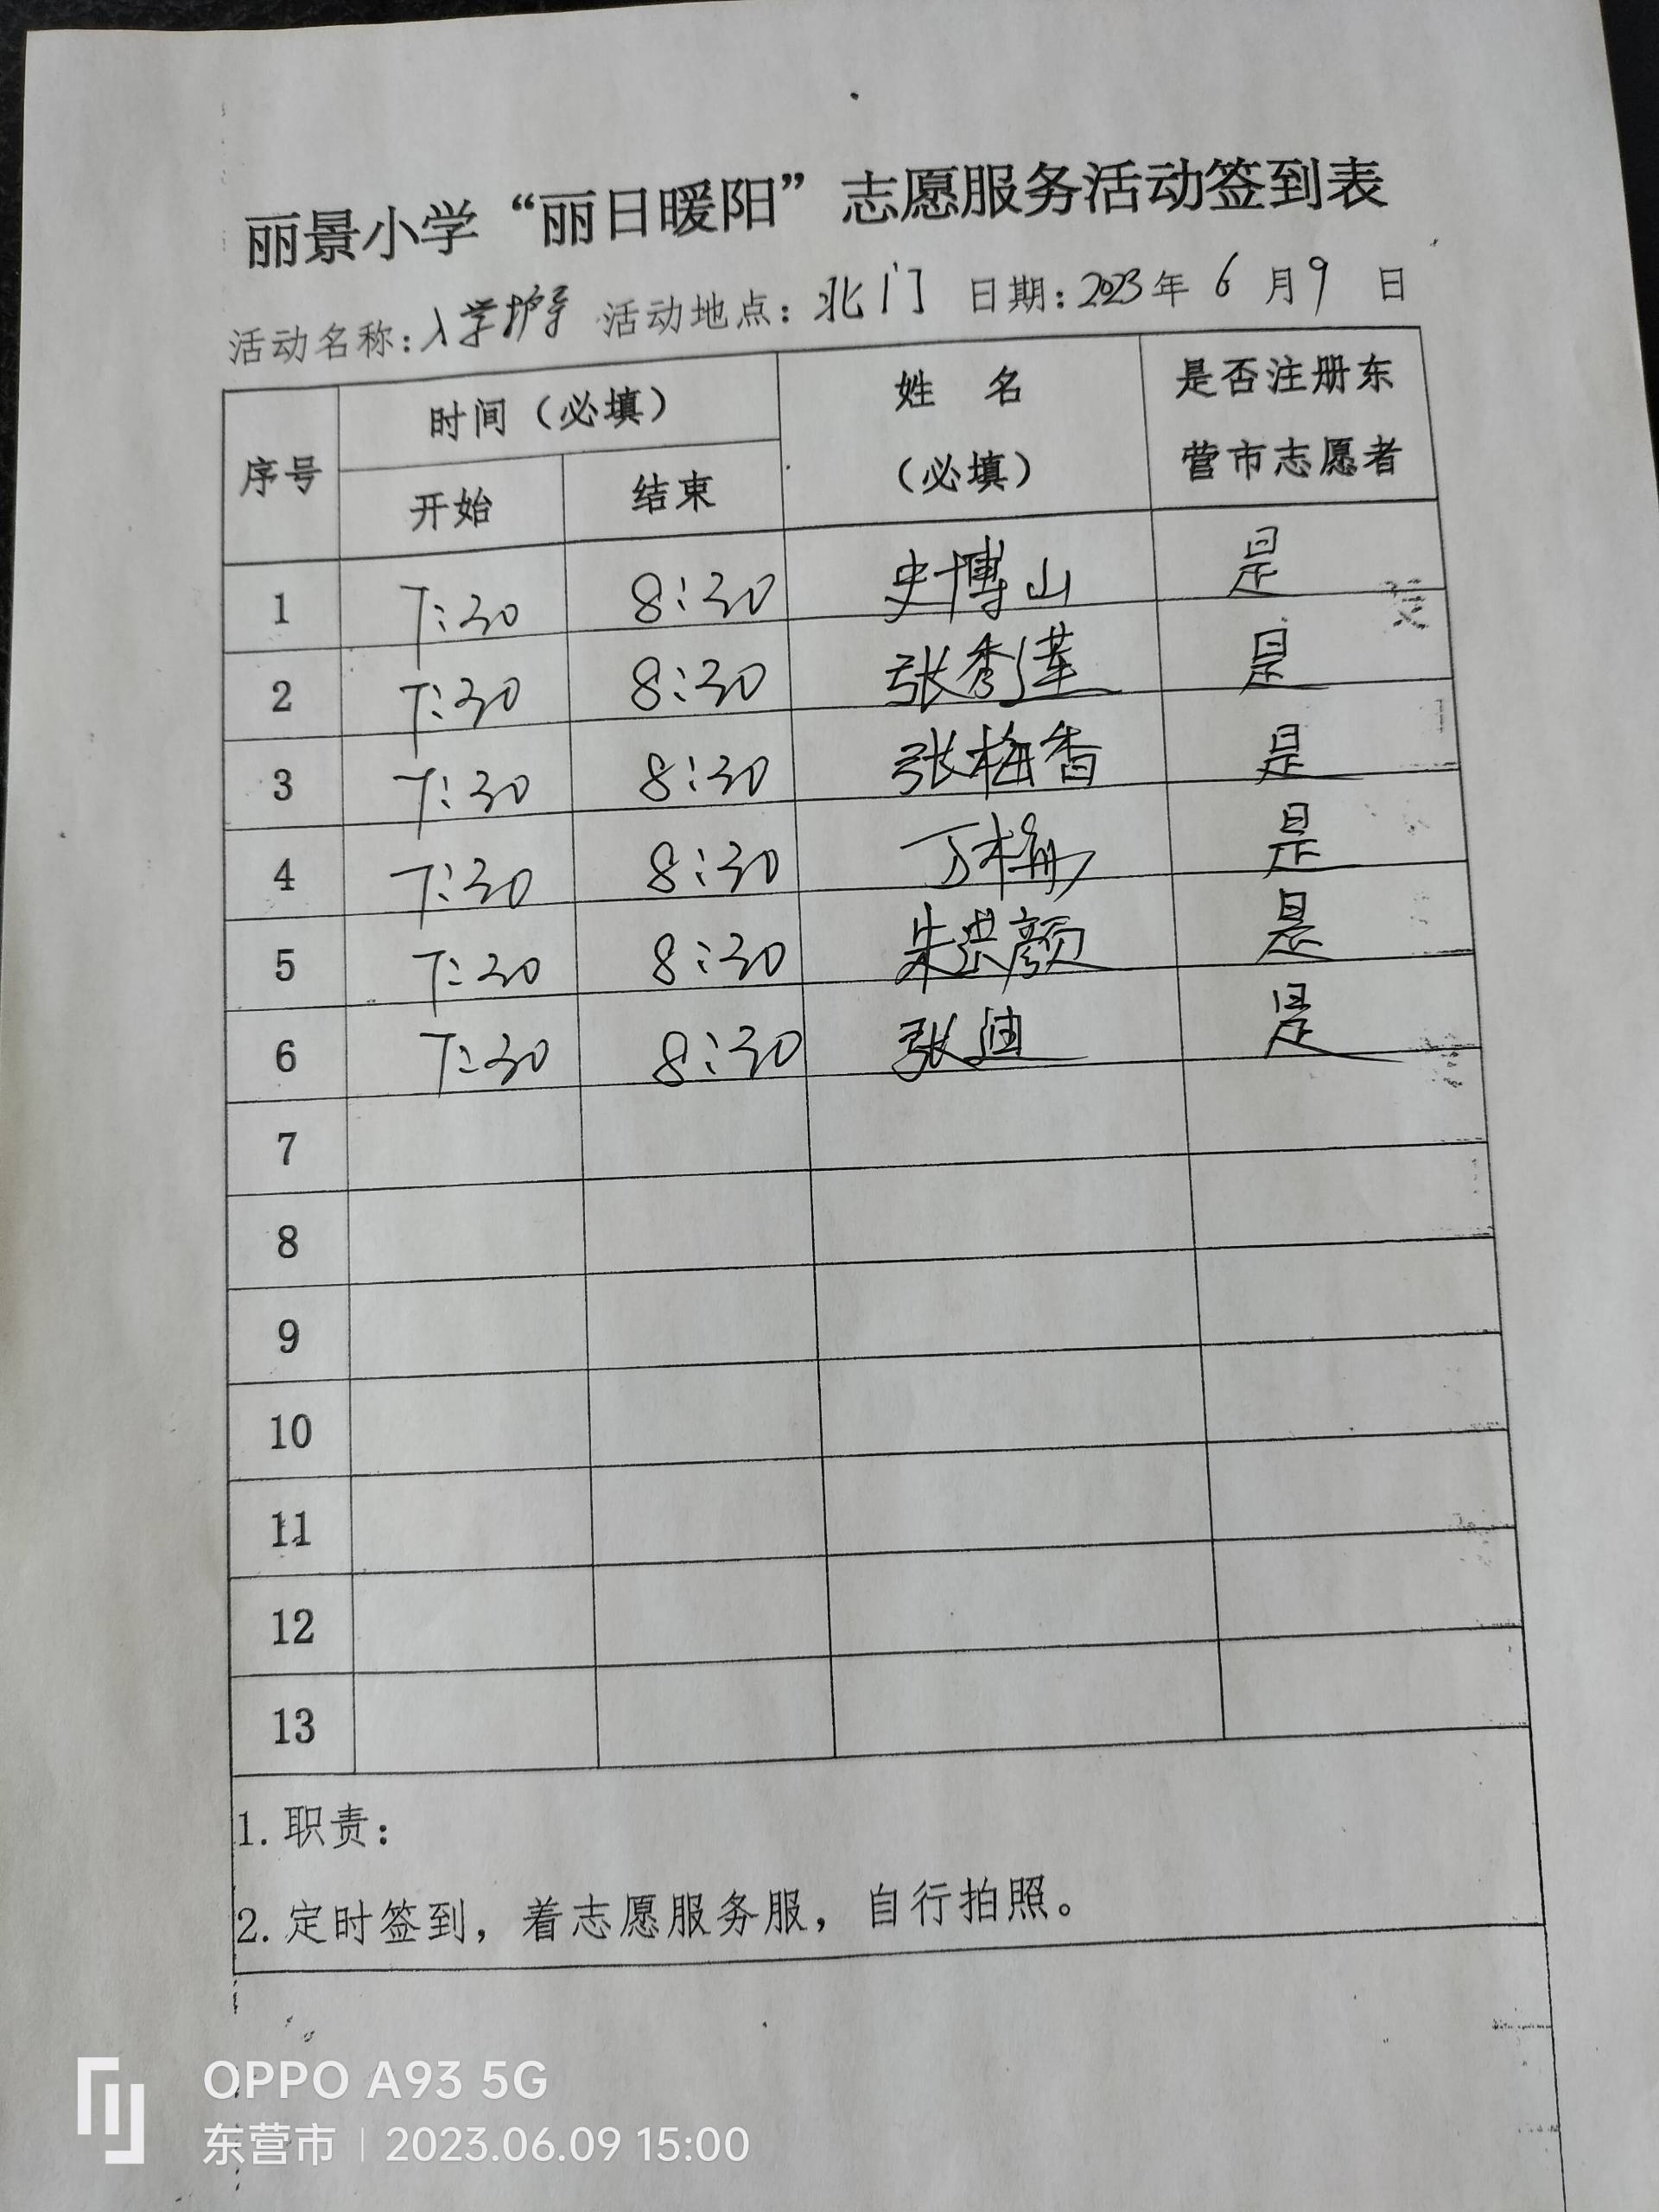 丽景小学“丽日暖阳”志愿服务活动签到表
活动名称:入学护导 活动地点:北门 日期:2023年6月9日
序号 时间（必填） 姓 名（必填） 是否注册东营市志愿者
开始 结束
1 7:30 8:30 史博山 是
2 7:30 8:30 张秀莲 是
3 7:30 8:30 张梅香 是
4 7:30 8:30 是
5 7:30 8:30 朱洪颜 是
6 7:30 8:30 张迪 是
7
8
9
10
11
12
13
1.职责:
2.定时签到，着志愿服务服，自行拍照。
OPPO A93 5G
东营市 | 2023.06.09 15:00